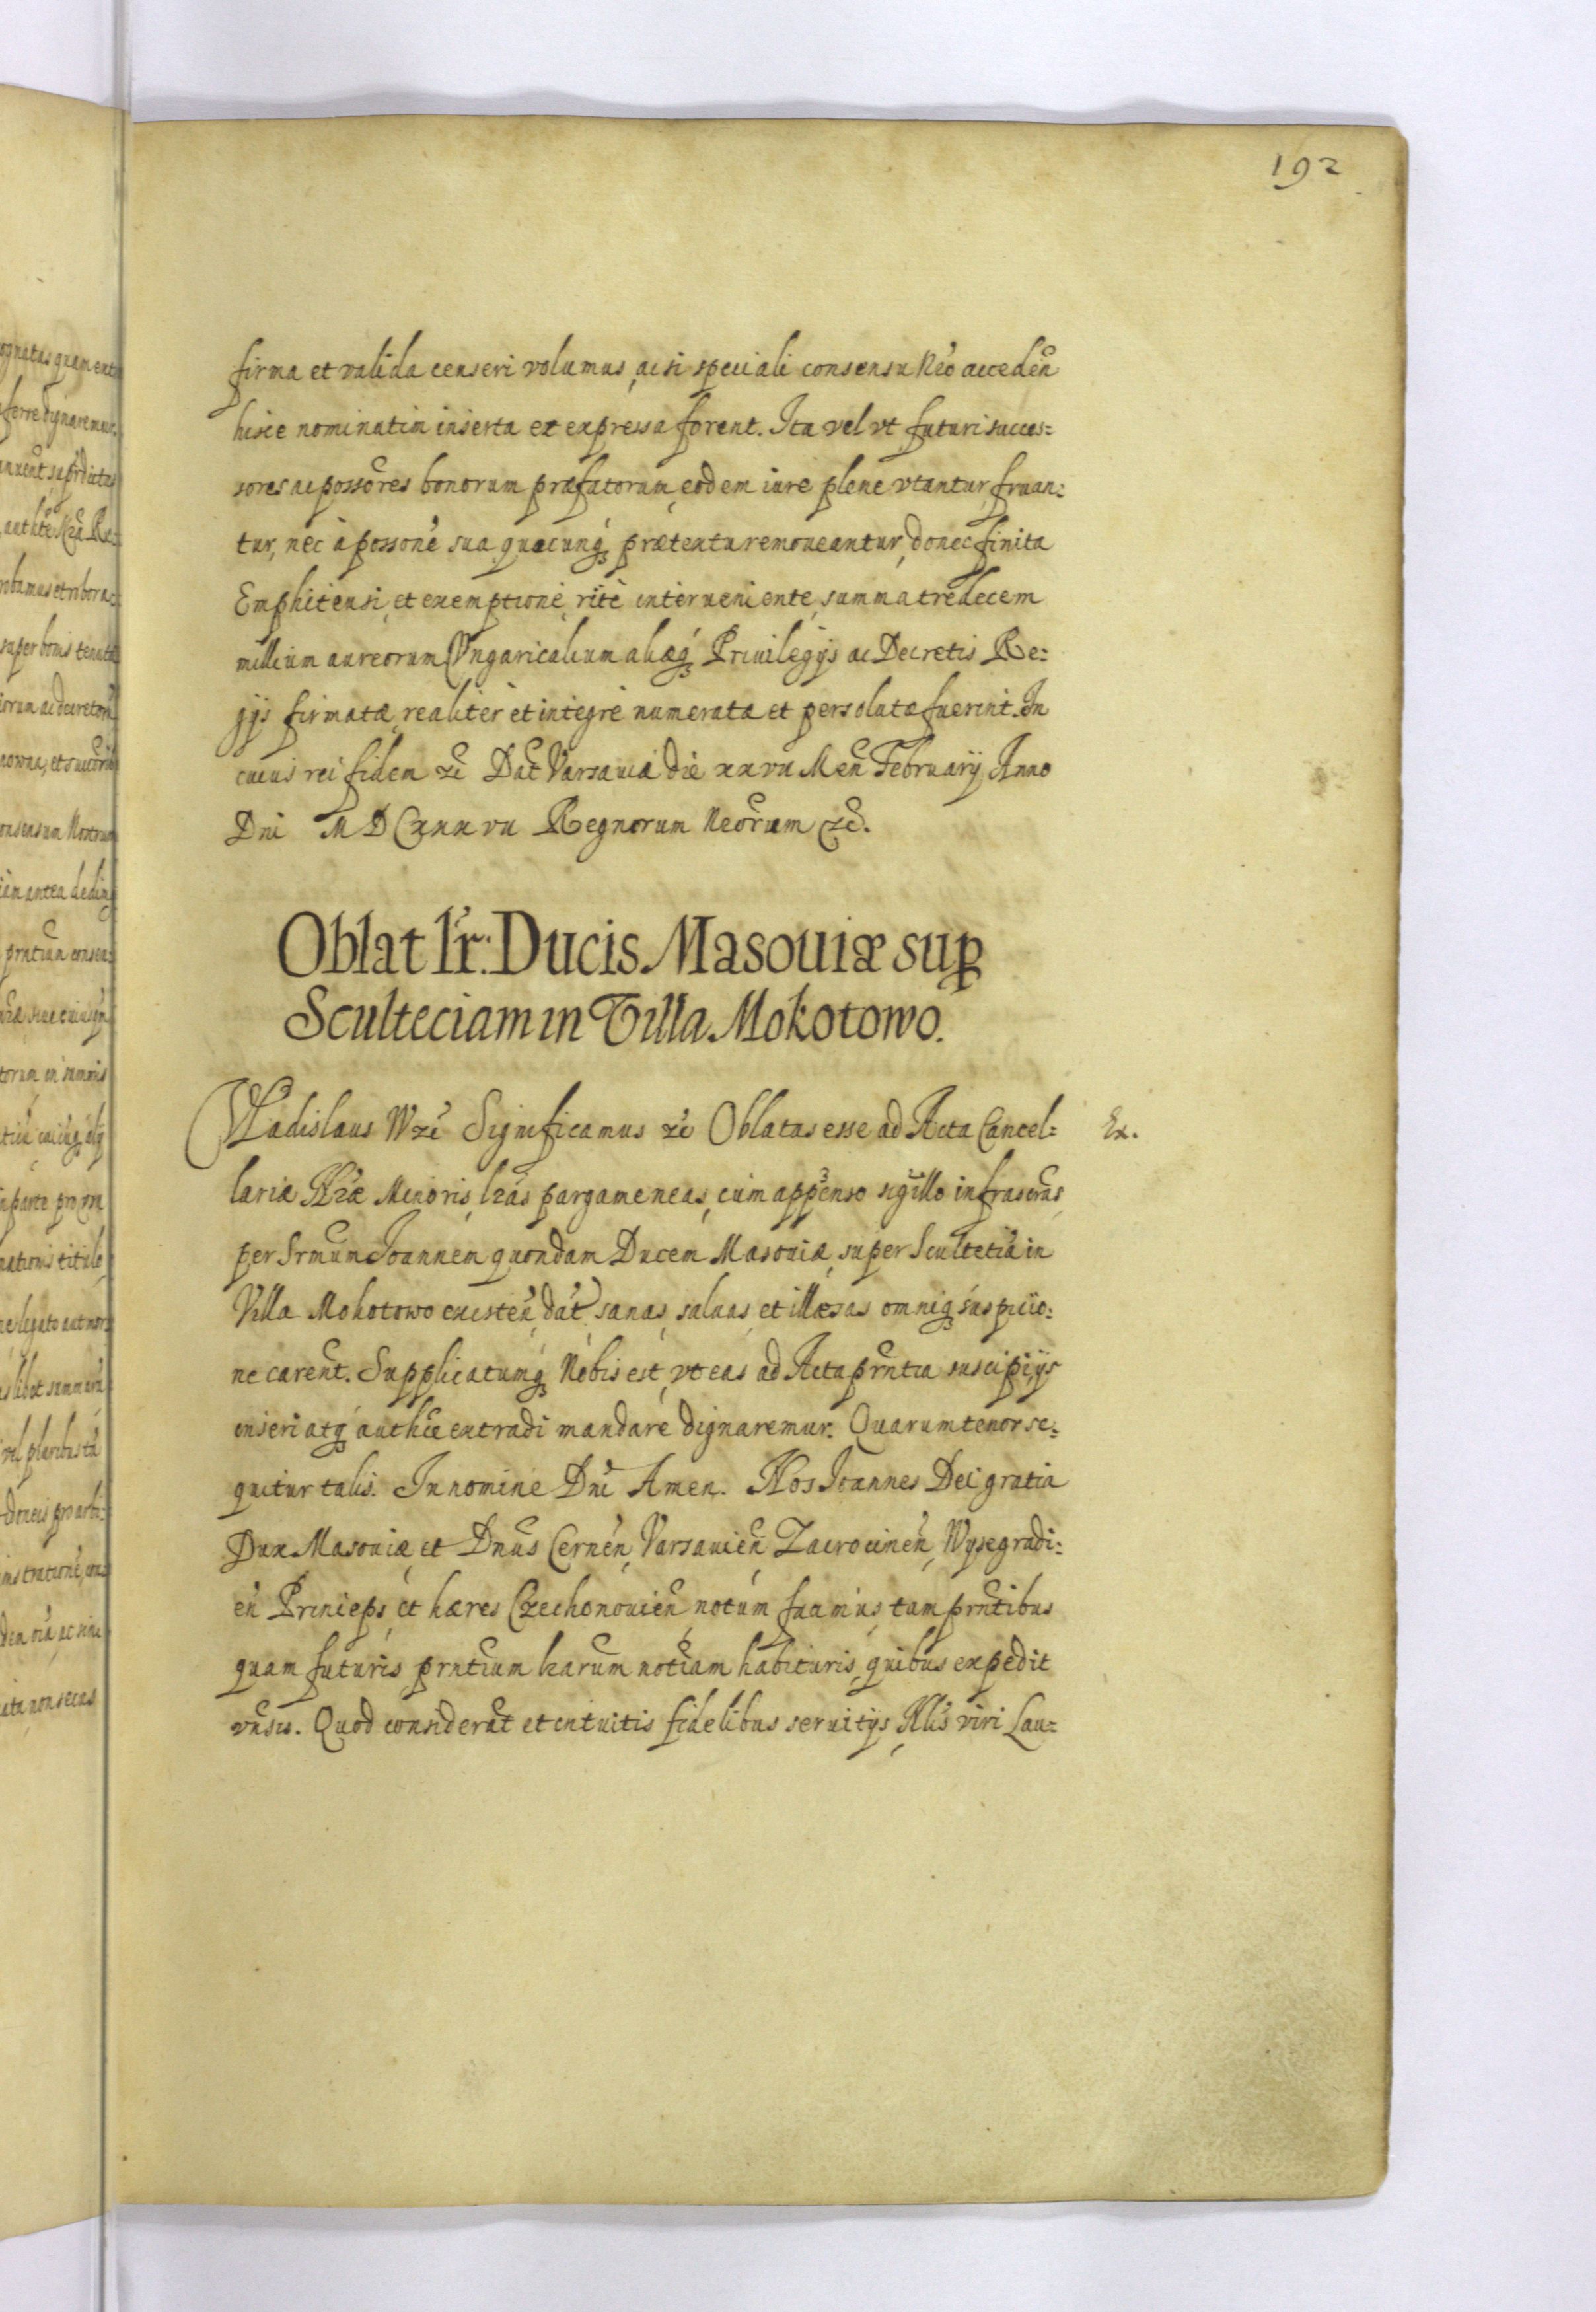 192
firma et valida censeri volumus, ac si speciali consensu Nr̃o acceden̄
hisce nominatim inserta et expressa forent. Ita vel vt futuri succes=
sores ac possores bonorum præfatorum, eodem iure plene vtantur, fruan=
tur, nec à possone sua quacunq́ prætextu remoueantur, donec finita
Emphiteusi, et exemptione, rite interueniente, summa tredecem
millium aureorum Vngaricalium aliæq́ Priuilegijs ac Decretis Re=
gijs firmatæ, realiter et integre numeratæ et persolutæ fuerint. In
cuius rei fidem zc̄ Dat̄ Varsauiæ die xxvii Men̄ February Anno
Dni M D C xxxvii Regnorum Nr̄orum zc̄.
Oblat lr̄: Ducis Masouiæ sup
Sculteciam in Villa Mokotowo.
Vladislaus IV zc̄ Significamus zc̄ Oblatas esse ad Acta Cancel=
Ex.
lariæ Nr̄æ Minoris, lr̄as pargameneas, cum appenso sigillo infrascr̄as,
per Srmum Joannem quondam Ducem Masouiæ, super Scultetia in
Villa Mokotowo existen̄, dat̄ sanas, saluas, et illæsas omniq́ suspicio=
ne caren̄t. Supplicatumq́ Nobis est, vt eas ad Acta prn̄tia suscipi, ijs
inseri atq́ authce extradi mandare dignaremur. Quarum tenor se=
quitur talis. In nomine Dn̄i Amen. Nos Joannes Dei gratia
Dux Masouiæ, et Dn̄us Cernen̄, Varsauien̄ Zacrocinen̄, Wysegradi=
en̄ Princeps, et hæres Czechonouien̄ notum facimus, tam prn̄tibus
quam futuris, prn̄tium harum not̄iam habituris, quibus expedit
vn̄sis. Quod considerat̄ et intuitis fidelibus seruitijs Nlis viri Lau=